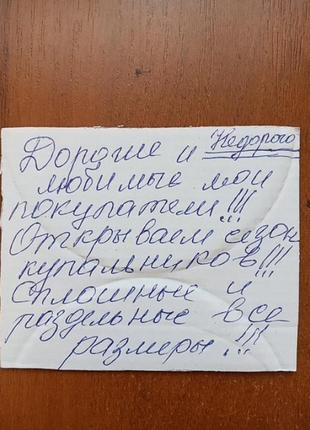 Недорого
Дорогие и
любимые мои
покупатели!!!
Открываем сезон
купальников!!!
Сплошные и
раздельные все
размеры!!!